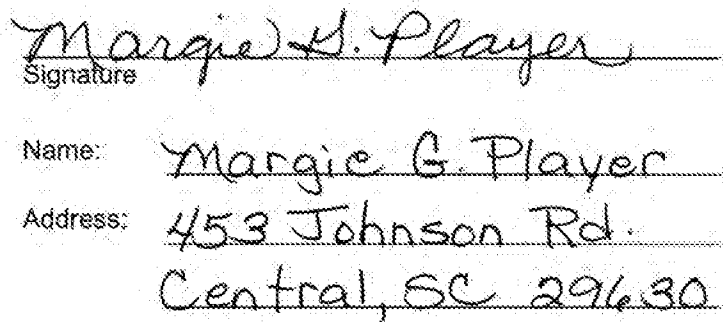 Margie G. Player
Signature
Name: Margie G. Player
Address: 453 Johnson Rd.
Central, SC 29630